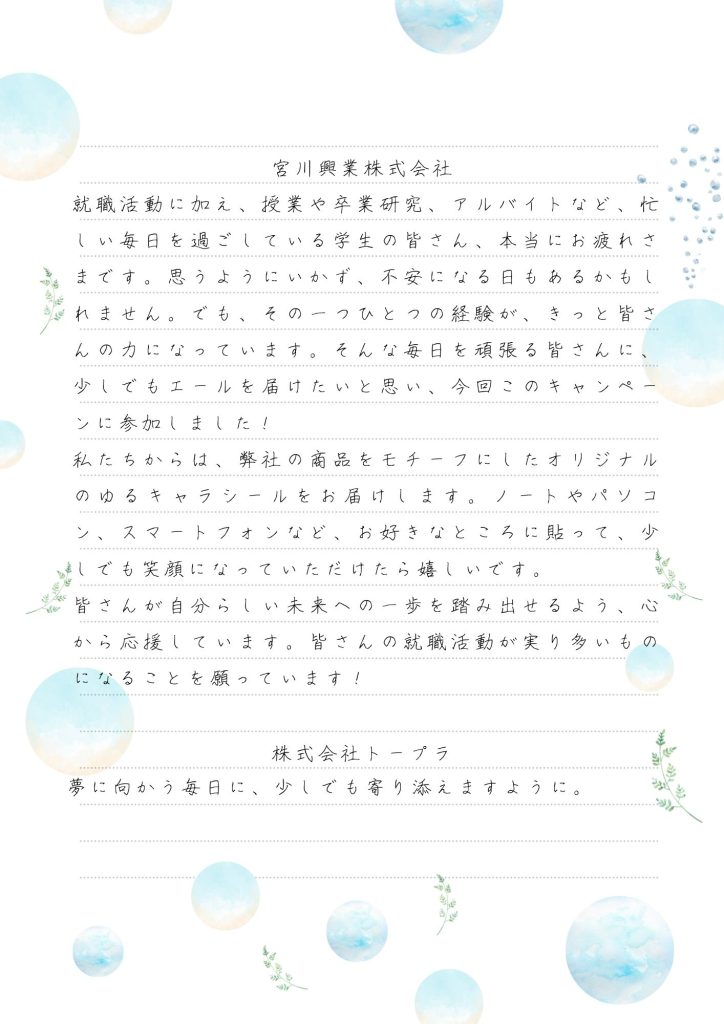 宮川興業株式会社
就職活動に加え、授業や卒業研究、アルバイトなど、忙
しい毎日を過ごしている学生の皆さん、本当にお疲れさ
まです。思うようにいかず、不安になる日もあるかもし
れません。でも、その一つひとつの経験が、きっと皆さ
んの力になっています。そんな毎日を頑張る皆さんに、
少しでもエールを届けたいと思い、今回このキャンペー
ンに参加しました！
私たちからは、弊社の商品をモチーフにしたオリジナル
のゆるキャラシールをお届けします。ノートやパソコ
ン、スマートフォンなど、お好きなところに貼って、少
しでも笑顔になっていただけたら嬉しいです。
皆さんが自分らしい未来への一歩を踏み出せるよう、心
から応援しています。皆さんの就職活動が実り多いもの
になることを願っています！
株式会社トープラ
夢に向かう毎日に、少しでも寄り添えますように。